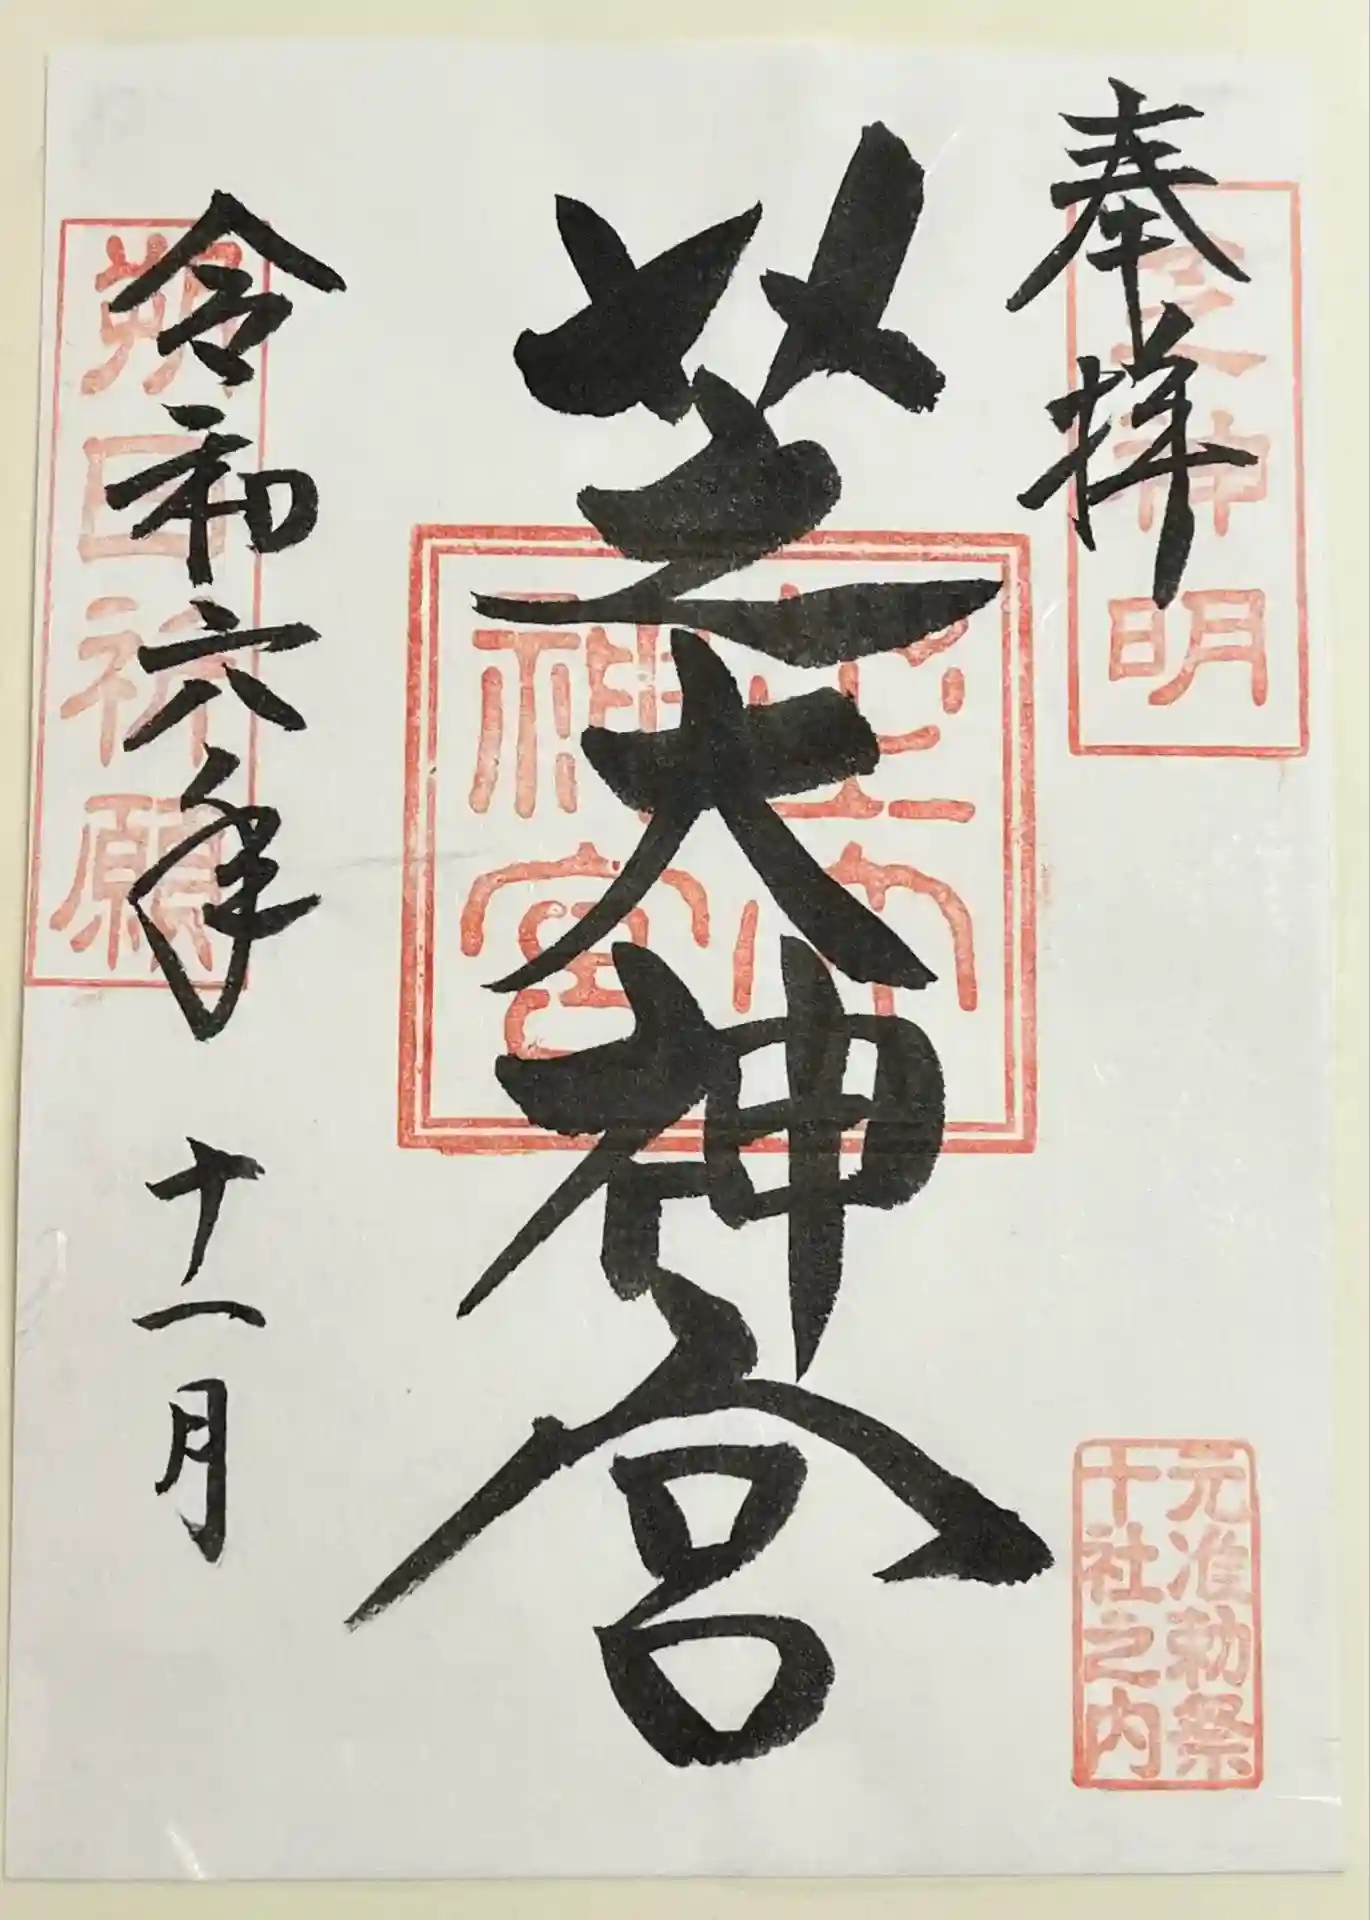 奉拝
芝神明
元准勅祭
十社之内
芝大神宮
芝大
神宮
令和六年 十一月
朔日祈願